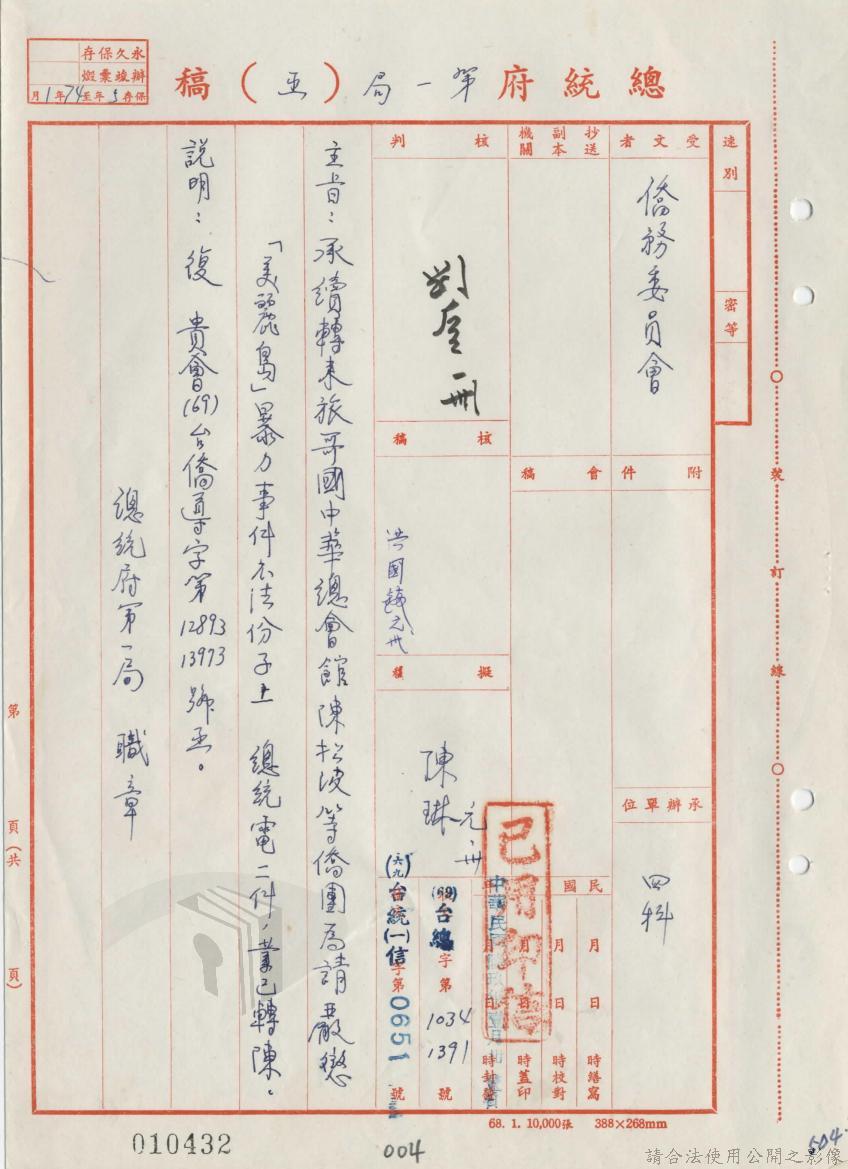 永久保存
辦竣彙燬
保存5年至74年1月
總統府第一局(函)稿
速別
密等
受文者
僑務委員會
抄送
副本
機關
核判
附件
會稿
核稿
洪國
擬稿
陳琳
元卅
承辦單位
四科
民國
年
月 日 時繕寫
月 日 時校對
月 日 時蓋印
月 日 時封發
已用印信
(69)台總字第1034 1391號
(六九)台統(一)信字第0651號
主旨：承續轉來旅哥國中華總會館陳松波等僑團為請嚴懲
「美麗島」暴力事件不法份子上 總統電二件，業已轉陳。
說明：復 貴會(69)台僑導字第12893 13973號函。
總統府第一局 職章
裝
訂
線
第 頁(共 頁)
68. 1. 10,000張 388×268mm
010432
004
504
請合法使用公開之影像